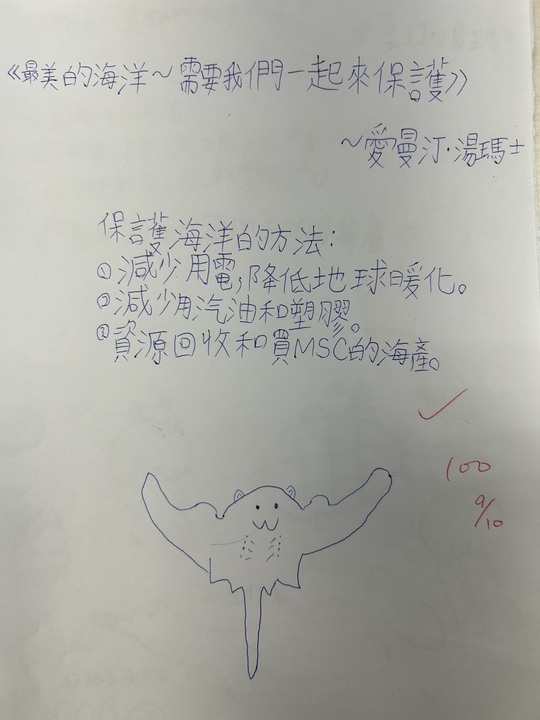 《最美的海洋～需要我們一起來保護》
～愛曼汀·湯瑪士
保護海洋的方法：
①減少用電，降低地球暖化。
②減少用汽油和塑膠。
③資源回收和買MSC的海產。
100
9/10